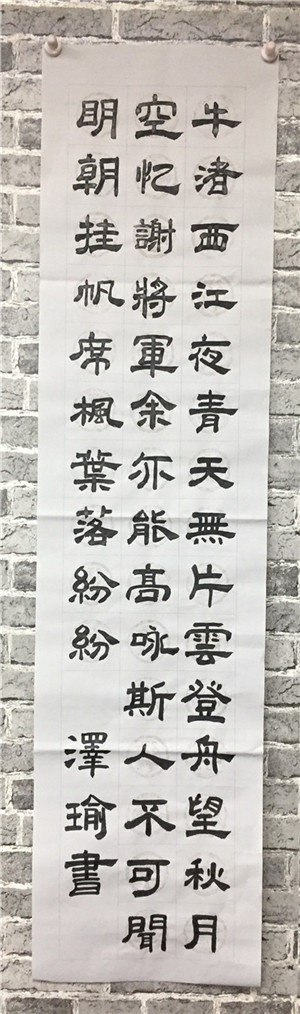 牛渚西江夜青天無片雲登舟望秋月
空忆謝將軍余亦能高咏斯人不可聞
明朝挂帆席楓葉落紛紛
澤瑜書